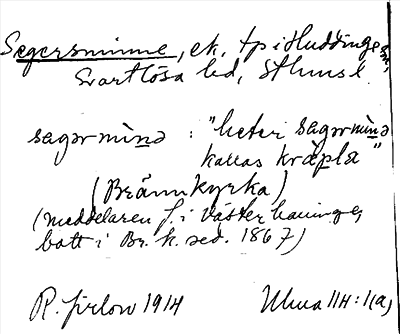 Segersminne, ek. tp i Huddinge sn,
Svartlösa hd, Sthms l.
sagərmìnə : "heter sagərmìnə
kallas kräpla"
(Brännkyrka)
(meddelaren f. i Västerhaninge,
bott i Br. k. sed. 1867)
R. Jirlow 1914